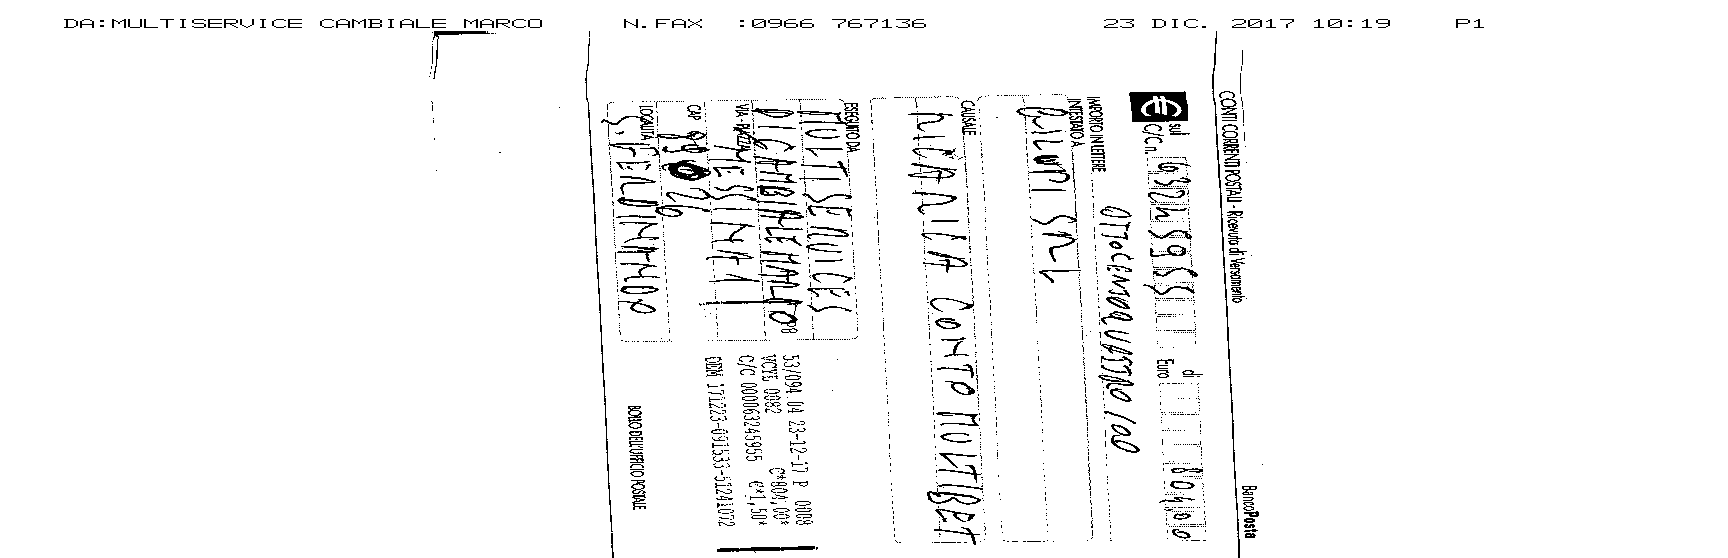 DA:MULTISERVICE CAMBIALE MARCO N.FAX :0966 767136 23 DIC. 2017 10:19 P1
CONTI CORRENTI POSTALI - Ricevuta di Versamento BancoPosta
€ sul C/C n. 63245955 di Euro 804,00
IMPORTO IN LETTERE OTTOCENTOQUATTRO/00
INTESTATO A
SRL
CAUSALE
RICARICA CONTO MULTIBET
ESEGUITO DA
MULTISERVICES
DI CAMBIALE MARCO
VIA - PIAZZA MESSINA 1
CAP 89026
LOCALITÀ S. FERDINANDO
53/094 04 23-12-17 P 0008
VCYL 0082 €*804,00*
C/C 000063245955 €*1,50*
BOLLO DELL'UFFICIO POSTALE